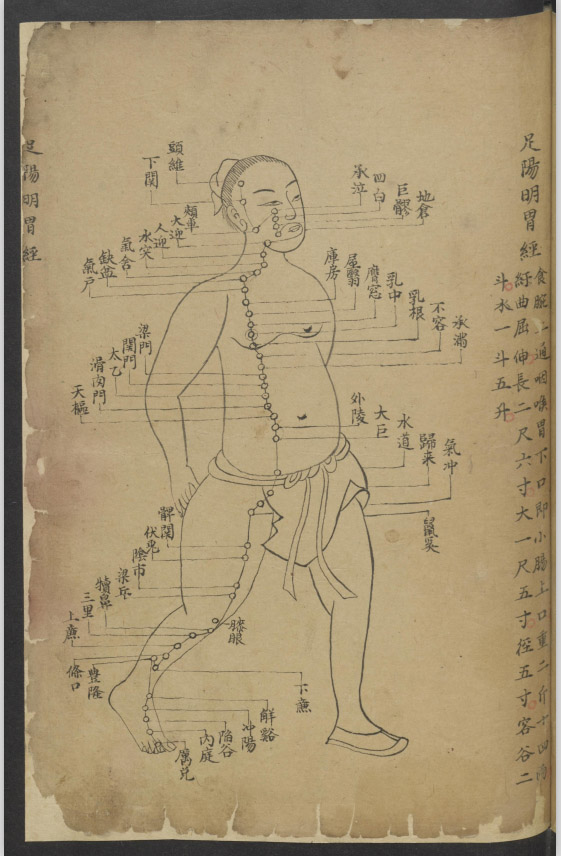 足陽明胃經
食脘二通咽喉胃下口即小腸上口重二斤十四兩
紆曲屈伸長二尺六寸大一尺五寸徑五寸容谷二
斗水一斗五升
足陽明胃經
頭維
下関
頰車
大迎
人迎
水突
氣舍
缺盆
氣戶
承泣
四白
巨髎
地倉
庫房
屋翳
膺窓
乳中
乳根
不容
承滿
梁門
関門
太乙
滑肉門
天樞
外陵
大巨
水道
歸来
氣冲
鼠奚
髀関
伏兔
陰市
梁丘
犢鼻
三里
上廉
條口
豊隆
膝眼
下廉
解谿
冲陽
陷谷
內庭
厲兌